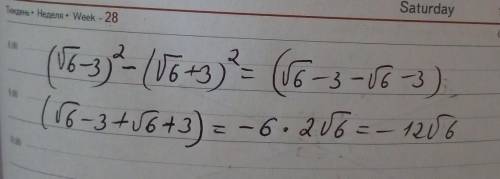 Тиждень • Неделя • Week - 28
Saturday
(√6-3)² - (√6+3)² = (√6-3-√6-3)
(√6-3+√6+3) = -6 • 2√6 = -12√6